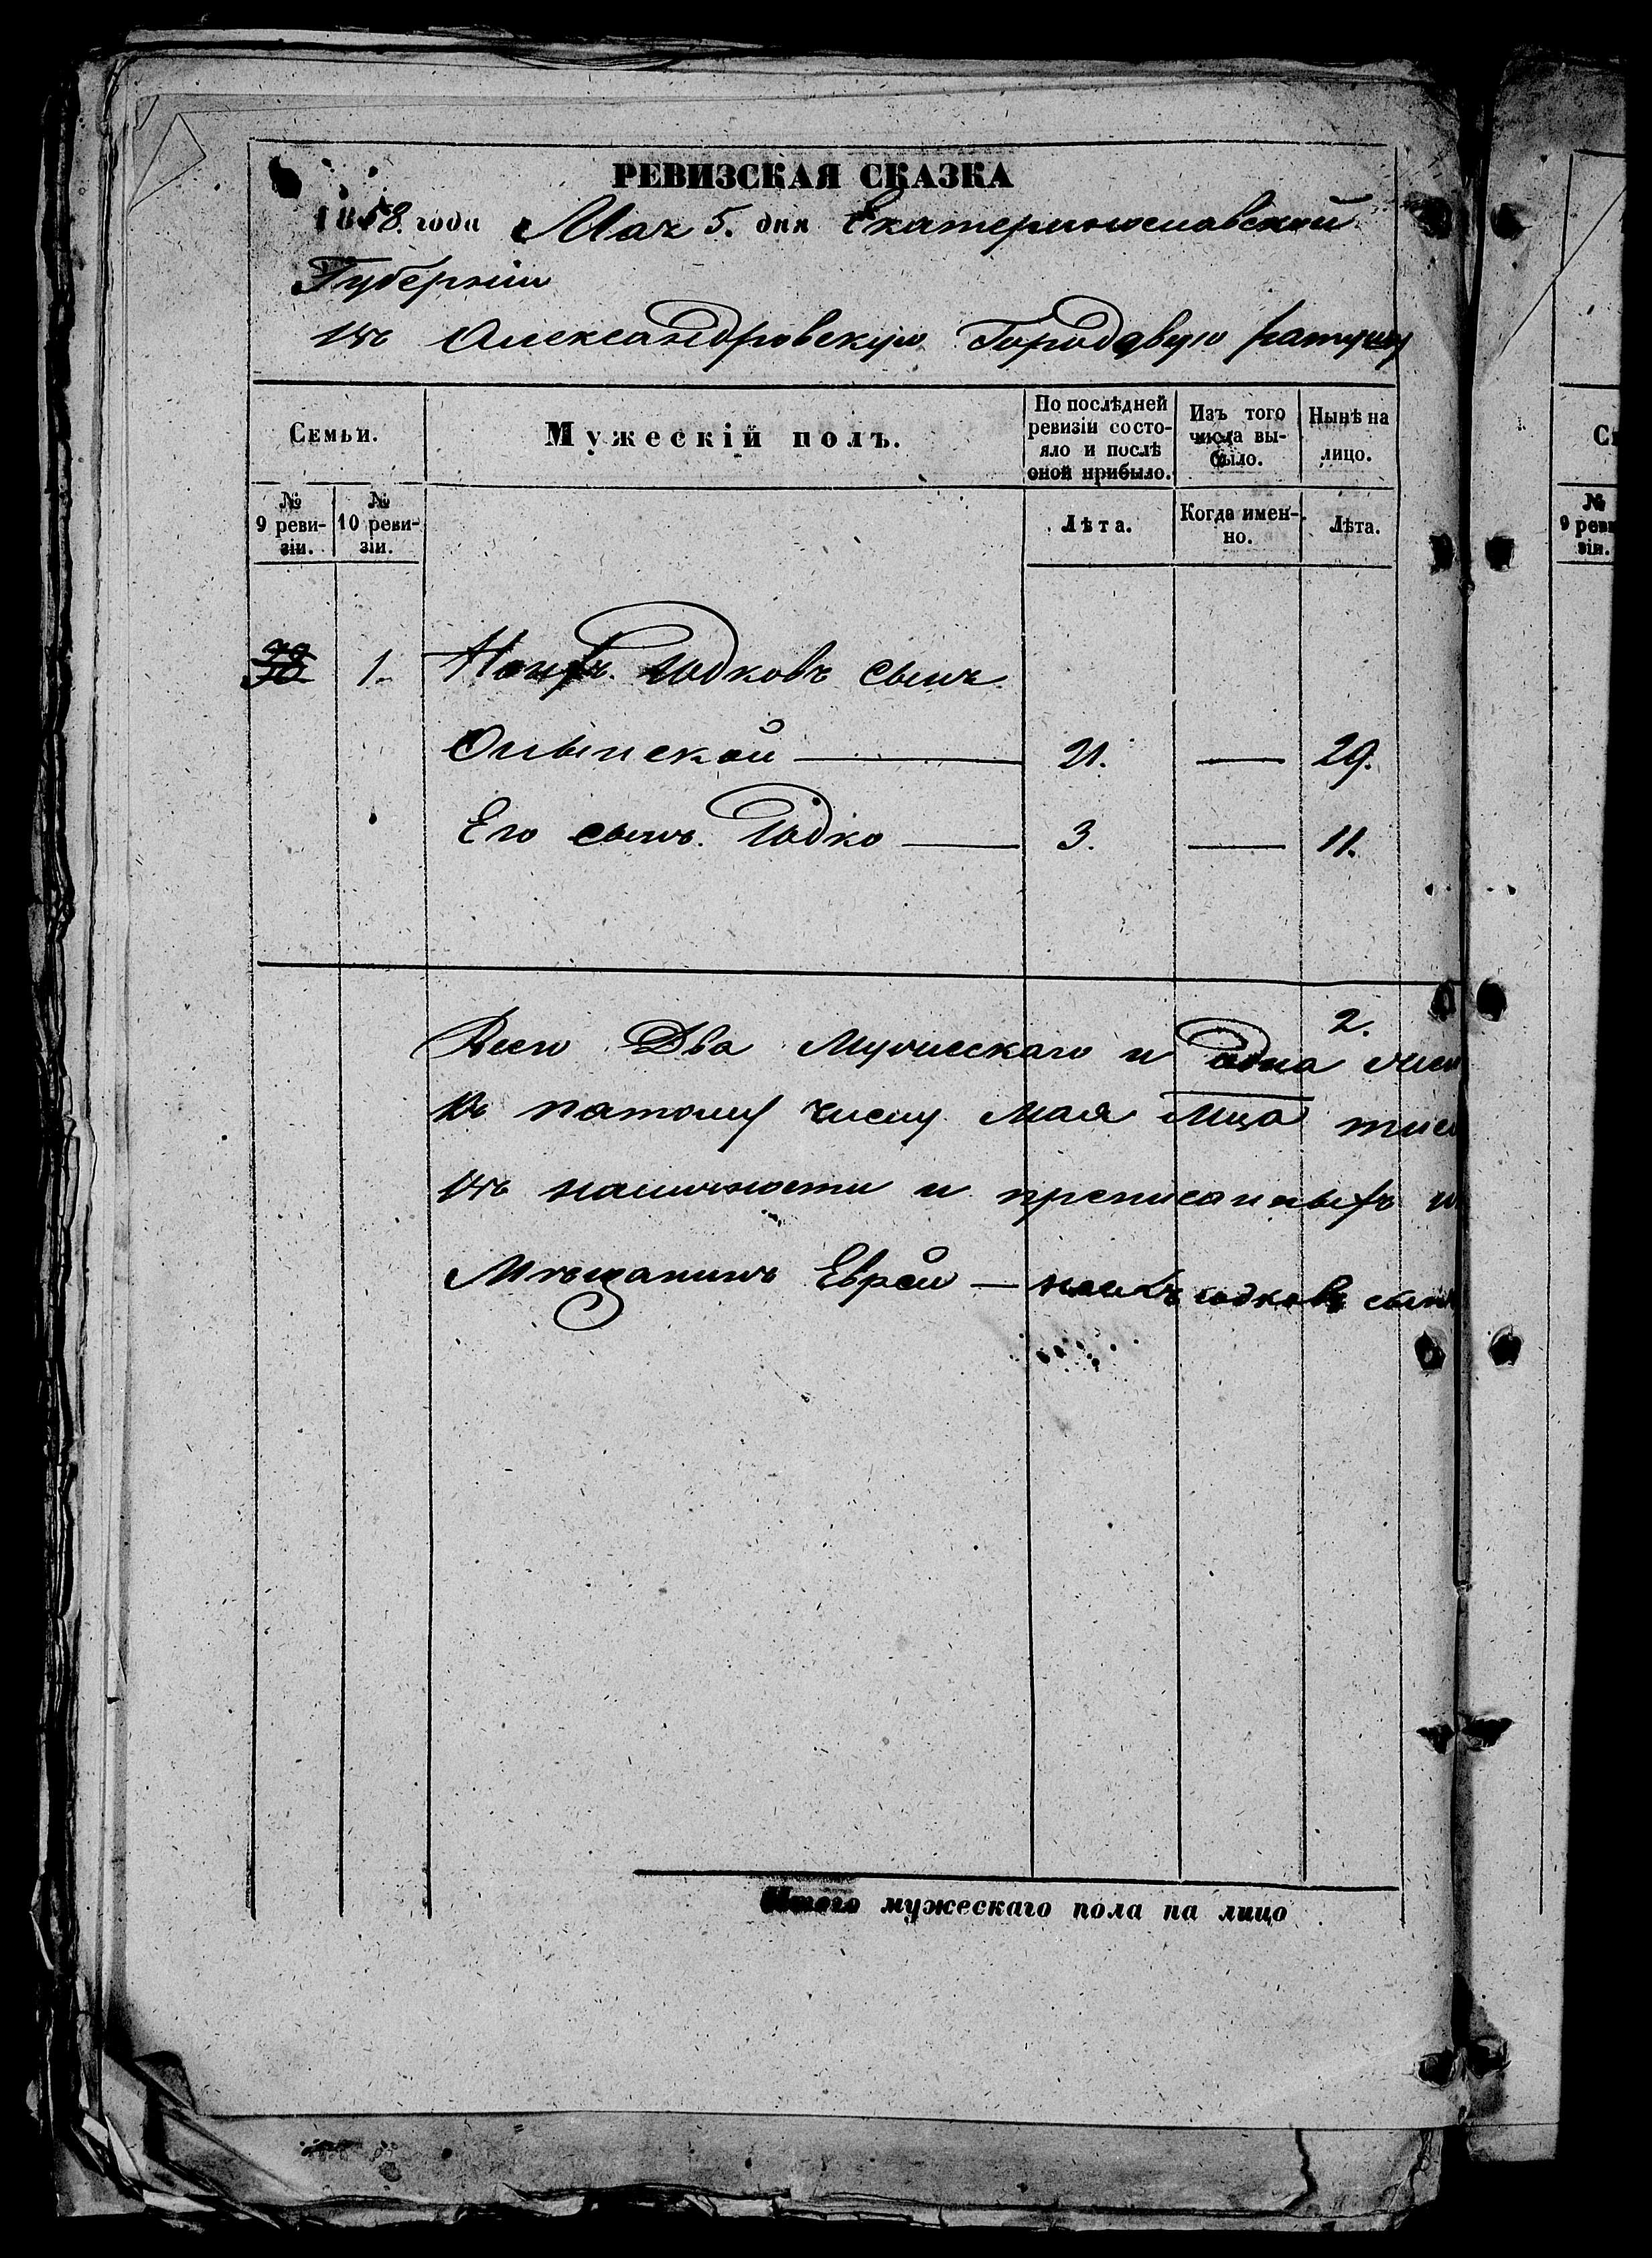 РЕВИЗСКАЯ СКАЗКА
1858. года Мая 5. дня Екатеринославской
Губернiи
Въ Александровскую Городовую ратушу
Семьи.
Мужескiй полъ.
По послѣдней ревизiи состояло и послѣ оной прибыло.
Изъ того числа выбыло.
Нынѣ на лицо.
№ 9 ревизiи.
№ 10 ревизiи.
Лѣта.
Когда именно.
Лѣта.
1. Юдковъ сынъ
21. 29.
Его сынъ. Юдко 3. 11.
2.
Всего Два Мужескаго и одна
Къ пятому числу Мая Мца
въ наличности и прописанныхъ
Мѣщанинъ Еврей Юдковъ сынъ
Итого мужескаго пола на лицо
№
9 реви
зiи.